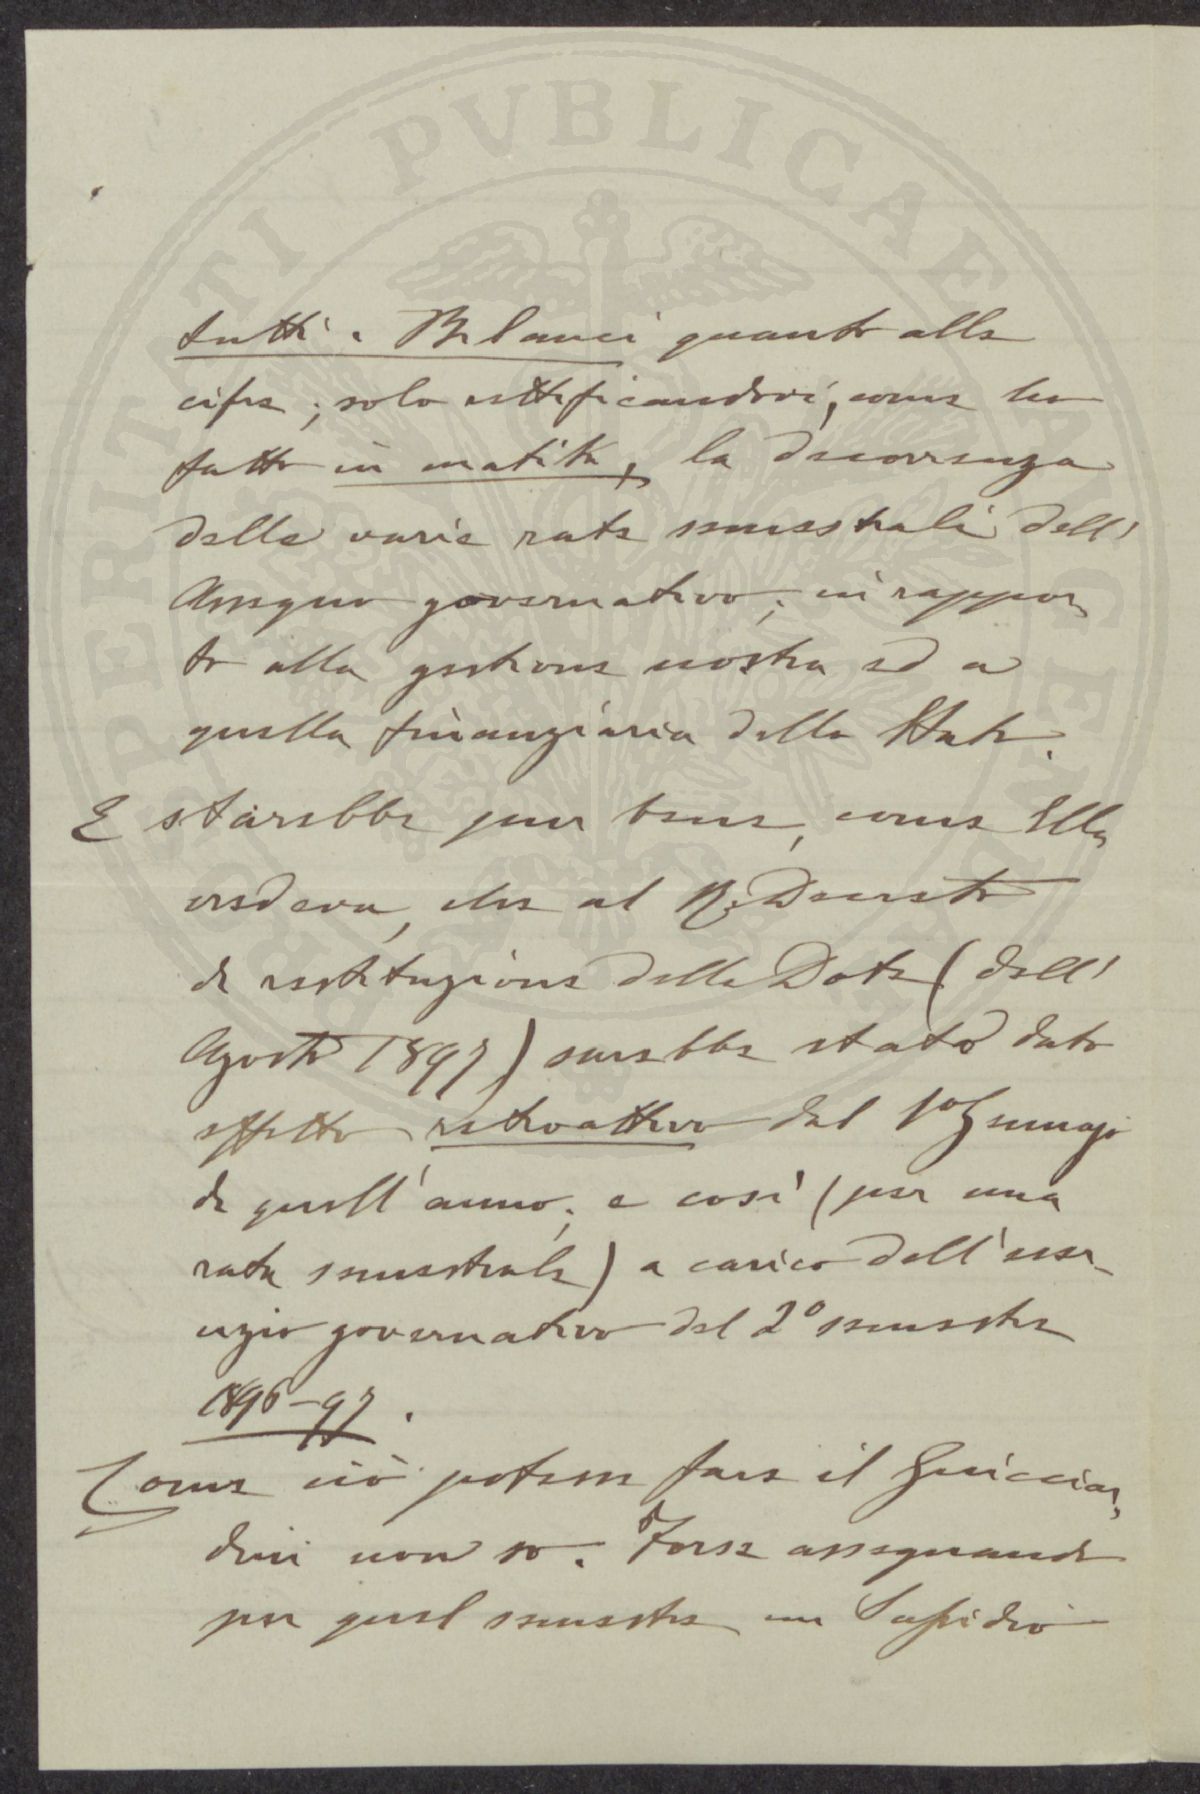 PERITATI PVBLICAE AVGENDAE
tutti i Bilanci quanto alle
cifre; solo rettificandovi, come ho
fatto in matita, la decorrenza
delle varie rate semestrali dell'
Assegno governativo; in rappor
to alla gestione nostra ed a
quella finanziaria dello Stato.
E starebbe pur bene, come Ella
credeva, che al R. Decreto
di restituzione della Dote (dell'
Agosto 1897) sarebbe stato dato
effetto retroattivo dal 1º Gennajo
di quell'anno; e così (per una
rata semestrale) a carico dell'eser-
cizio governativo del 2º semestre
1896-97.
Come ciò potesse fare il Guicciar
dini non so. Forse assegnando
per quel semestre un Sussidio